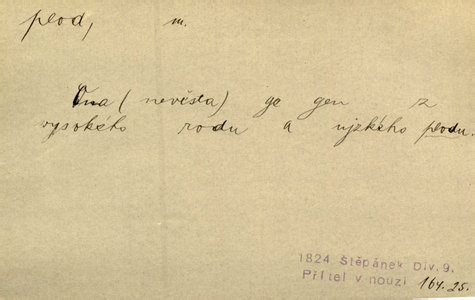 plod, m.
Ona (nevěsta) ge gen z
vysokého rodu a njzkého plodu.
1824 Štěpánek Div. 9.
Přítel v nouzi 164.25.